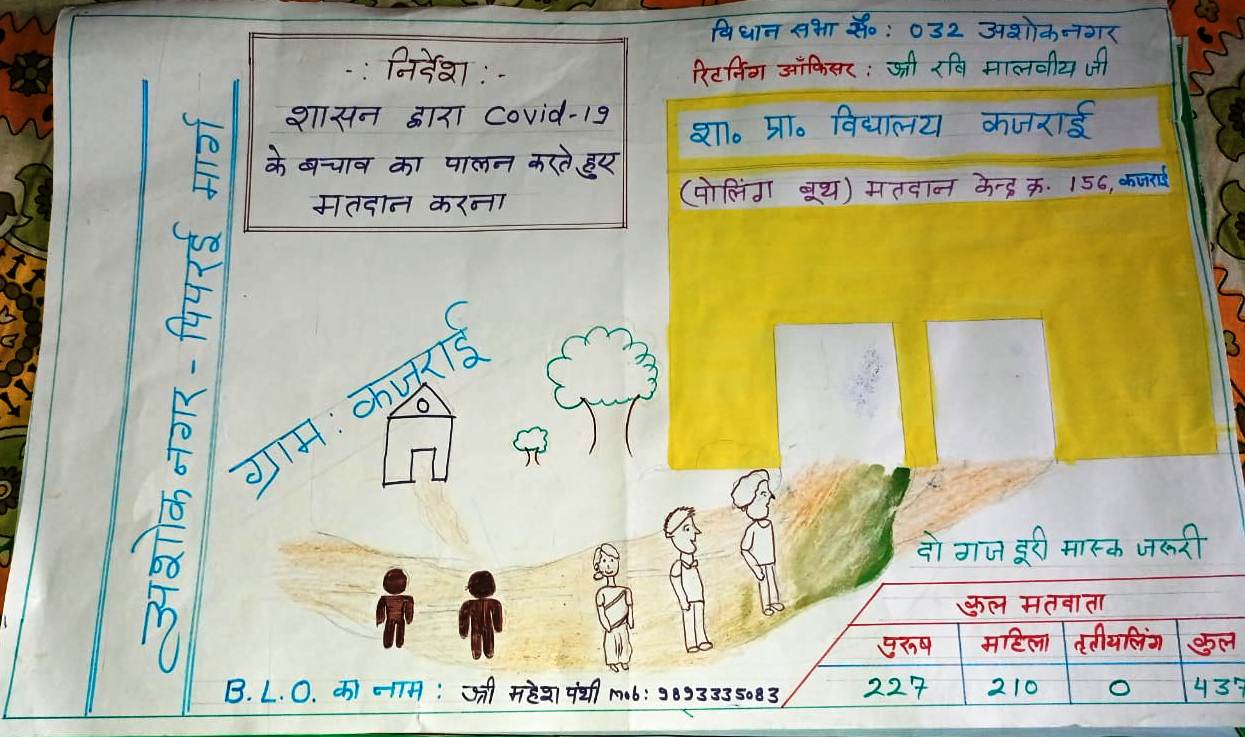 विधान सभा सं॰ : 032 अशोकनगर
रिटर्निंग ऑफिसर : श्री रवि मालवीय जी
-: निर्देश :-
शासन द्वारा Covid-19
के बचाव का पालन करते हुए
मतदान करना
शा॰ प्रा॰ विद्यालय कजराई
(पोलिंग बूथ) मतदान केन्द्र क्र. 156, कजराई
अशोक नगर - पिपरई मार्ग
ग्राम : कजराई
दो गज दूरी मास्क जरूरी
कुल मतदाता
पुरूष महिला तृतीयलिंग कुल
227 210 0 437
B.L.O. का नाम : श्री महेश पंथी mob: 9893335083